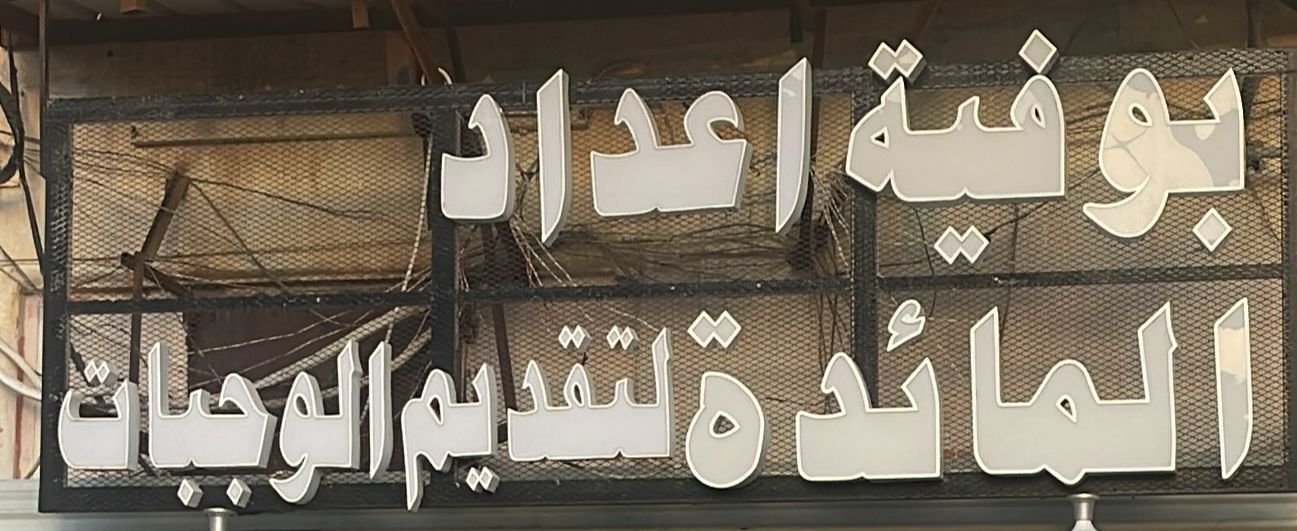 بوفية اعداد
المائدة لتقديم الوجبات